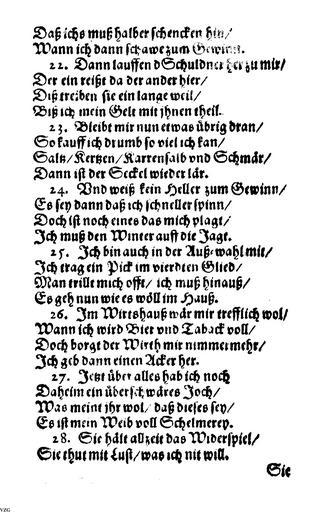 Daß ichs muß halber schencken hin/
Wann ich dann schawe zum Gewinn.
22. Dann lauffen d Schuldner her zu mir/
Der ein reißt da der ander hier/
Diß treiben sie ein lange weil/
Biß ich mein Gelt mit jhnen theil.
23. Bleibt mir nun etwas übrig dran/
So kauff ich drumb so viel ich kan/
Saltz/ Kertzen/ Karrensalb vnd Schmär/
Dann ist der Seckel wieder lär.
24. Vnd weiß kein Heller zum Gewinn/
Es sey dann daß ich schneller spinn/
Doch ist noch eines das mich plagt/
Ich muß den Winter auff die Jagt.
25. Ich bin auch in der Auß-wahl mit/
Ich trag ein Pick im vierdten Glied/
Man trillt mich offt/ ich muß hinauß/
Es geh nun wie es wöll im Hauß.
26. Im Wirtshauß wär mir trefflich wol/
Wann ich wird Bier vnd Taback voll/
Doch borgt der Wirth mir nimmermehr/
Ich geb dann einen Acker her.
27. Jetzt über alles hab ich noch
Daheim ein überschwäres Joch/
Was meint jhr wol/ daß dieses sey/
Es ist mein Weib voll Schelmerey.
28. Sie hält allzeit das Widerspiel/
Sie thut mit Lust/ was ich nit will.
Sie
VZG